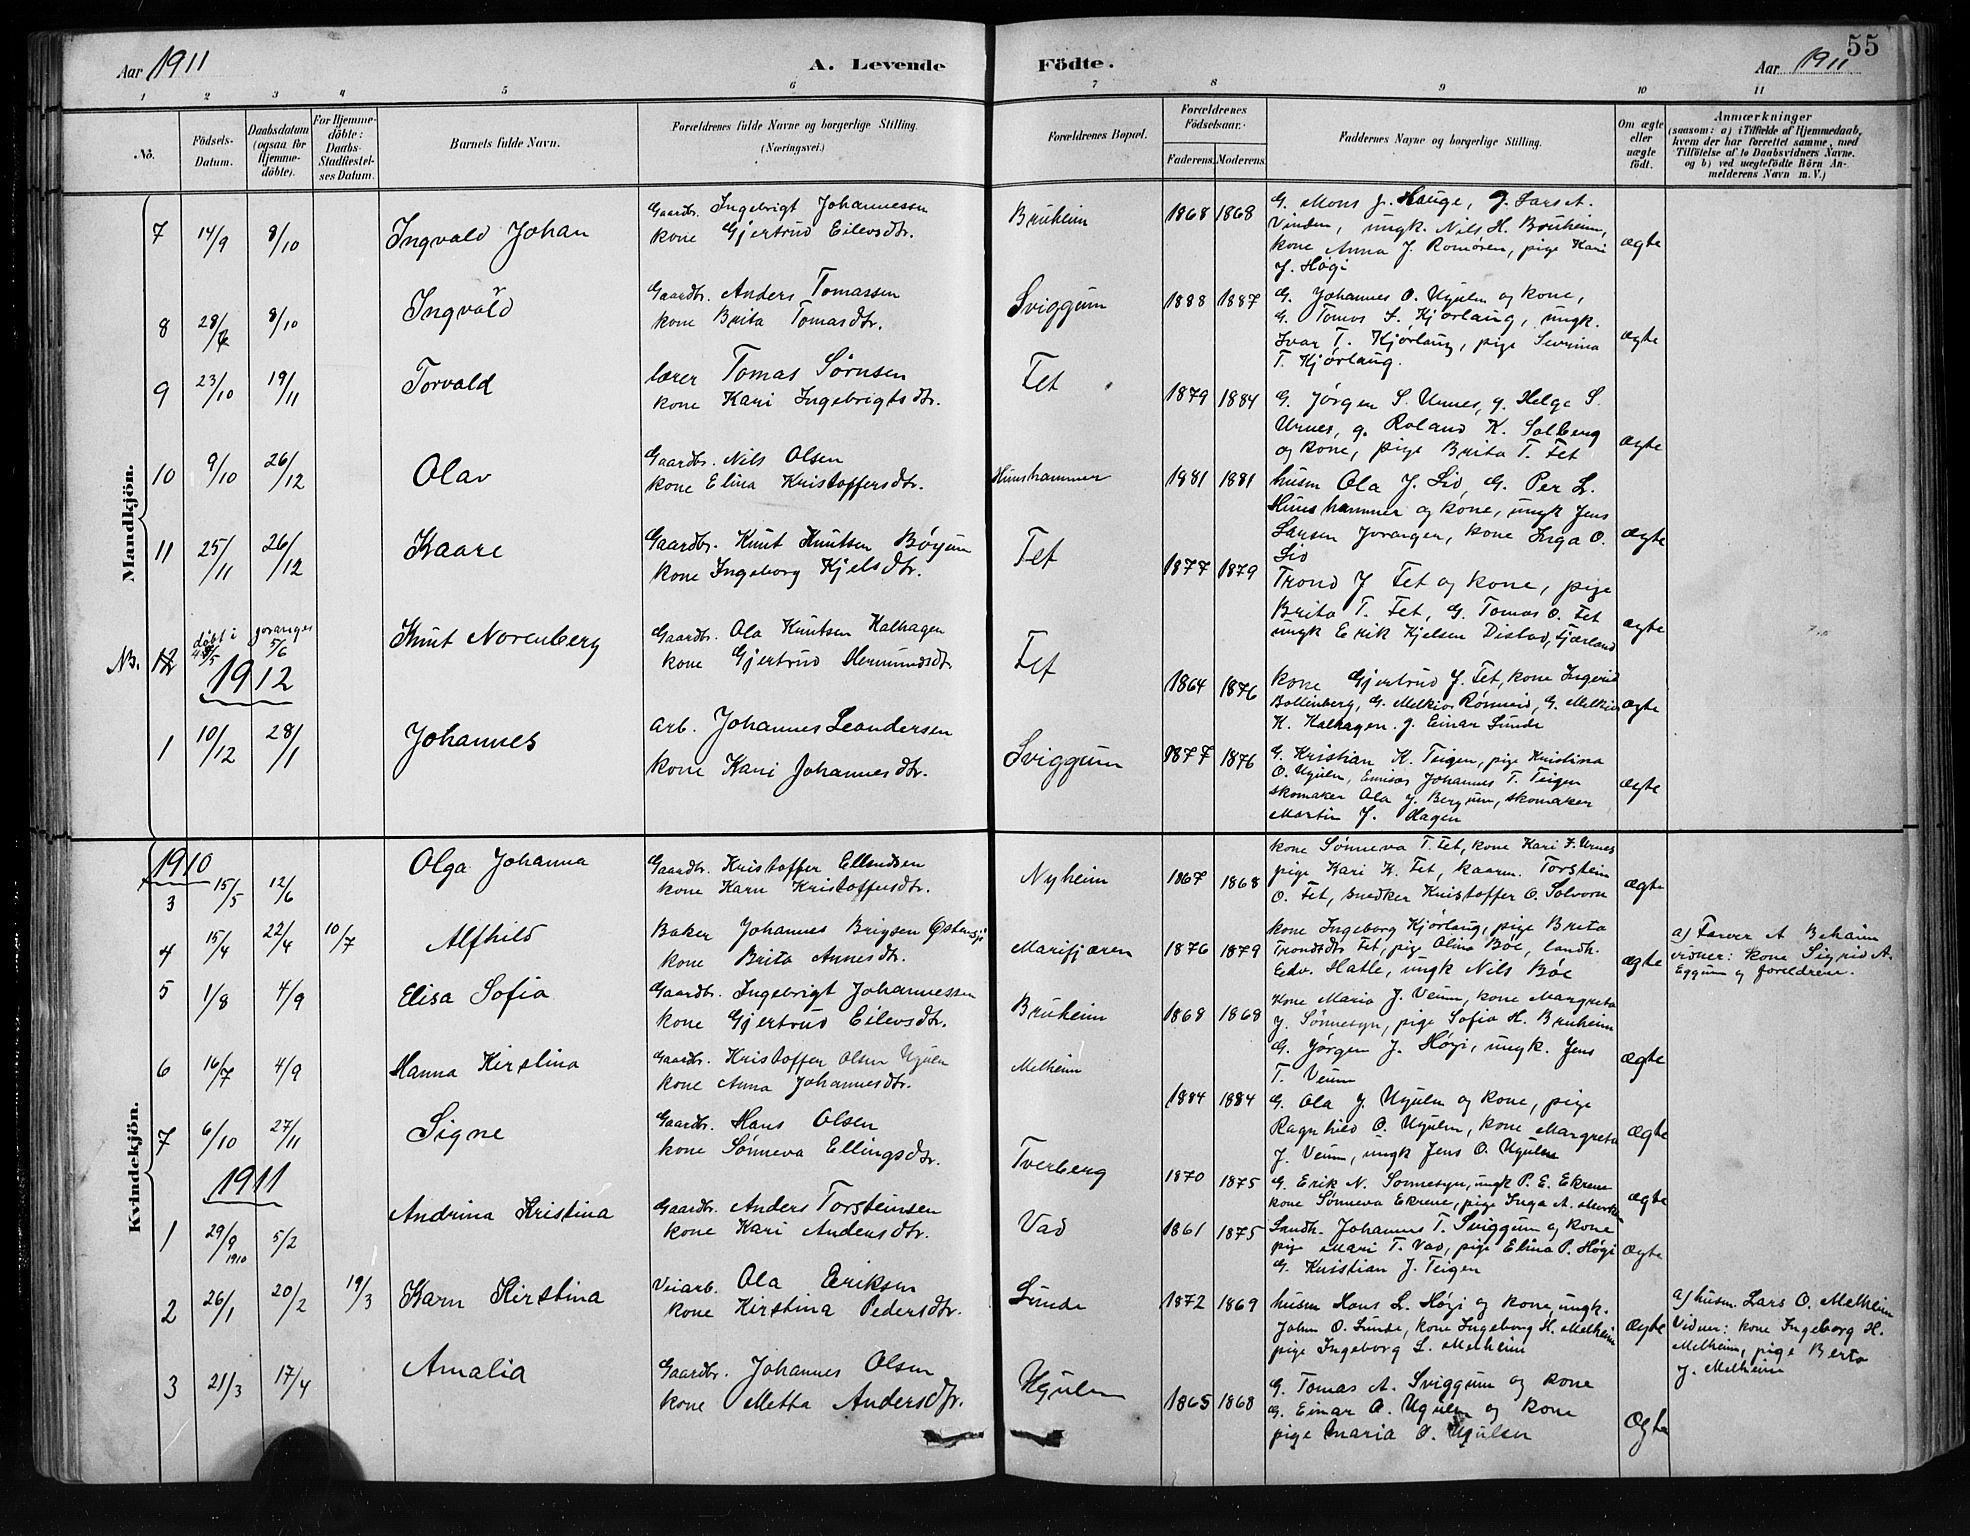 55
Aar 1911 A. Levende Födte. Aar 1911
1 2 3 4 5 6 7 8 9 10 11
No.
Födsels-Datum.
Daabsdatum (ogsaa for Hjemmedöbte).
For Hjemmedöbte: Daabs-Stadfæstelses Datum.
Barnets fulde Navn.
Forældrenes fulde Navne og borgerlige Stilling. (Næringsvei.)
Forældrenes Bopæl.
Forældrenes Födselsaar.
Faderens. Moderens.
Faddernes Navne og borgerlige Stilling.
Om ægte eller uægte födt.
Anmærkninger
(saasom: a) i Tilfælde af Hjemmedaab, hvem der har forrettet samme, med Tilföielse af to Daabsvidners Navne, og b) ved uægtefödte Börn Anmelderens Navn m. V.)
Mandkjön.
7 14/9 8/10 Ingvald Johan
Gaardbr. Ingebrigt Johannessen
kone Gjertrud Eilevsdtr.
Bruheim 1868 1868
G. Mons J. Hauge, J. Farset.
Vinden, ungk. Nils H. Bruheim,
kone Anna J. Romøren, pige Kari
J. Høgi
ægte
8 28/6 8/10 Ingvald
Gaardbr. Anders Tomassen
kone Brita Tomasdtr.
Sviggum 1888 1887
G. Johannes O. Ugulen og kone,
G. Tomas S. Kjørlaug, ungk.
Ivar T. Kjørlaug, pige Sevrina
T. Kjørlaug.
ægte
9 23/10 19/11 Torvald
lærer Tomas Sørnsen
kone Kari Ingebrigtsdtr.
Fet 1879 1884
G. Jørgen S. Urnes, g. Helge S.
Urnes, g. Roland K. Solberg
og kone, pige Brita T. Fet
ægte
10 9/10 26/12 Olav
Gaardbr. Nils Olsen
kone Elina Kristoffersdtr.
Hunshammer 1881 1881
husm Ola J. Lid, G. Per L.
Hunshammer og kone, ungk Jens
Larsen Joranger, kone Inga O.
Lid
ægte
11 25/11 26/12 Kaare
Gaardbr. Knut Knutsen Bøyum
kone Ingeborg Kjelsdtr.
Fet 1877 1879
Trond J Fet og kone, pige
Brita T. Fet, G. Tomas O. Fet
ungk Erik Kjelsen Distad, Fjærland
ægte
NB. 12 døbt i Joranger 5/6 Knut Norenberg
Gaardbr. Ola Knutsen Kalhagen
kone Gjertrud Hermundsdtr
Fet 1864 1876
kone Gjertrud J. Fet, kone Ingerid
Bollenberg, G. Melkior Rønneid, G. Melkior
K. Kalhagen. g. Einar Sunde
ægte
1912
1 10/12 28/1 Johannes
Arb. Johannes Leandersen
kone Kari Johannesdtr.
Sviggum 1877 1876
G. Kristian K. Teigen, pige Kristina
O. Ugulen, Emisær Johannes T. Teigen
skomaker Ola J. Bergum, skomaker
Martin J. Hagen
ægte
Kvindekjön.
1910
3 15/5 12/6 Olga Johanna
Gaardbr. Kristoffer Ellendsen
kone Kari Kristoffersdtr.
Nyheim 1867 1868
kone Sønneva T. Fet, kone Kari F. Urnes
pige Kari K. Fet, kaarm. Torstein
O. Fet, snedker Kristoffer O. Solvorn
ægte
4 15/4 22/4 10/7 Alfhild
Baker Johannes Brigsen Østensjø
kone Brita Annesdtr.
Marifjæren 1876 1879
kone Ingeborg Kjørlaug, pige Brita
Trondsdtr Fet, pige Olina Bøe, landh.
Edv. Hatle, ungk Nils Bøe
ægte
a) Farver A Beheim
vidner: kone Sigrid A.
Eggum og foreldrene.
5 1/8 4/9 Elisa Sofia
Gaardbr. Ingebrigt Johannessen
kone Gjertrud Eilevsdtr.
Bruheim 1868 1868
Kone Maria J. Veum, kone Margreta
J. Sønnesyn, pige Sofia H. Bruheim
G. Jørgen J. Høgi, ungk. Jens
T. Veum
ægte
6 16/7 4/9 Hanna Kirstina
Gaardbr. Kristoffer Olsen Ugulen
kone Anna Johannesdtr.
Melheim 1884 1884
G. Ola J. Ugulen og kone, pige
Ragnhild O. Ugulen, kone Margreta
J. Veum, ungk Jens O. Ugulen
ægte
7 6/10 27/11 Signe
Gaardbr. Hans Olsen
kone Sønneva Ellingsdtr.
Tverberg 1870 1875
G. Erik N. Sonnesyn, ungk P. E. Ekrene
kone Sønneva Ekrene, pige Inga A.
ægte
1911
1 29/9 1910 5/2 Andrina Kristina
Gaardbr. Anders Torsteinsen
kone Kari Andersdtr.
Vad 1861 1875
Landh. Johannes T. Sviggum og kone
pige Mari T. Vad, pige Elina P. Høgi
G. Kristian J. Teigen
ægte
2 26/1 20/2 19/3 Karn Kirstina
Veiarb. Ola Eriksen
kone Kirstina Pedersdtr.
Sunde 1872 1869
husm Hans L. Høgi og kone, ungk.
Johan O. Sunde, kone Ingeborg H. Melheim
pige Ingeborg L. Melheim
ægte
a) husm. Lars O. Melheim
Vidner: kone Ingeborg H.
Melheim, pige Berta
J. Melheim
3 21/3 17/4 Amalia
Gaardbr. Johannes Olsen
kone Metta Andersdtr.
Ugulen 1865 1868
G. Tomas A. Sviggum og kone
G. Einar O. Ugulen og kone
pige Maria O. Ugulen
ægte